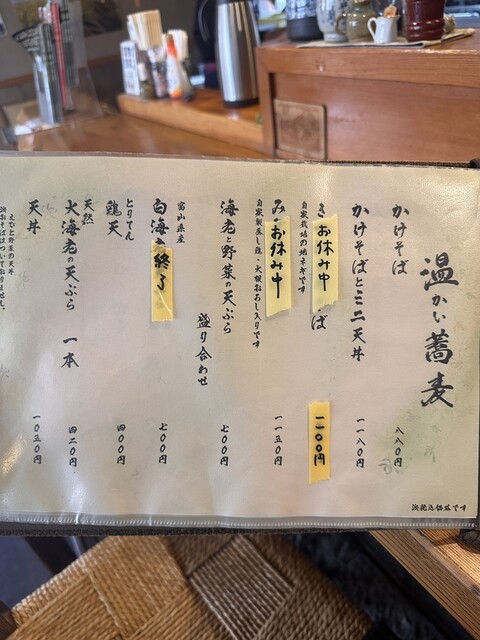 温かい蕎麦
かけそば 八八〇円
かけそばとミニ天丼 一一八〇円
き お休み中 ば 一二〇〇円
自家栽培の焼ネギです
み お休み中 一一五〇円
自家製蒸し鶏・大根おろし入りです
海老と野菜の天ぷら 盛り合わせ 七〇〇円
富山県産
白海老 終了 七〇〇円
とりてん
鶏天 四〇〇円
天然
大海老の天ぷら 一本 四二〇円
天丼 一〇五〇円
えびと野菜の天丼
※おそばはついておりません。
※税込価格です